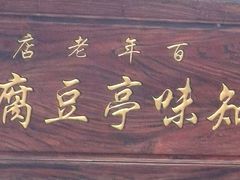 百年老店
知味亭豆腐